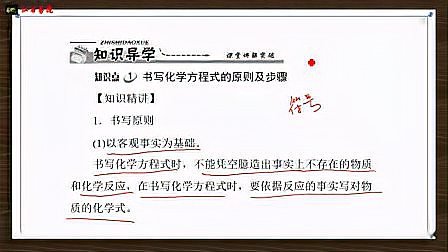 ZHISHIDAOXUE
知识导学
课堂讲解突破
知识点1 书写化学方程式的原则及步骤
【知识精讲】
符号
1. 书写原则
(1)以客观事实为基础.
书写化学方程式时，不能凭空臆造出事实上不存在的物质
和化学反应，在书写化学方程式时，要依据反应的事实写对物
质的化学式。